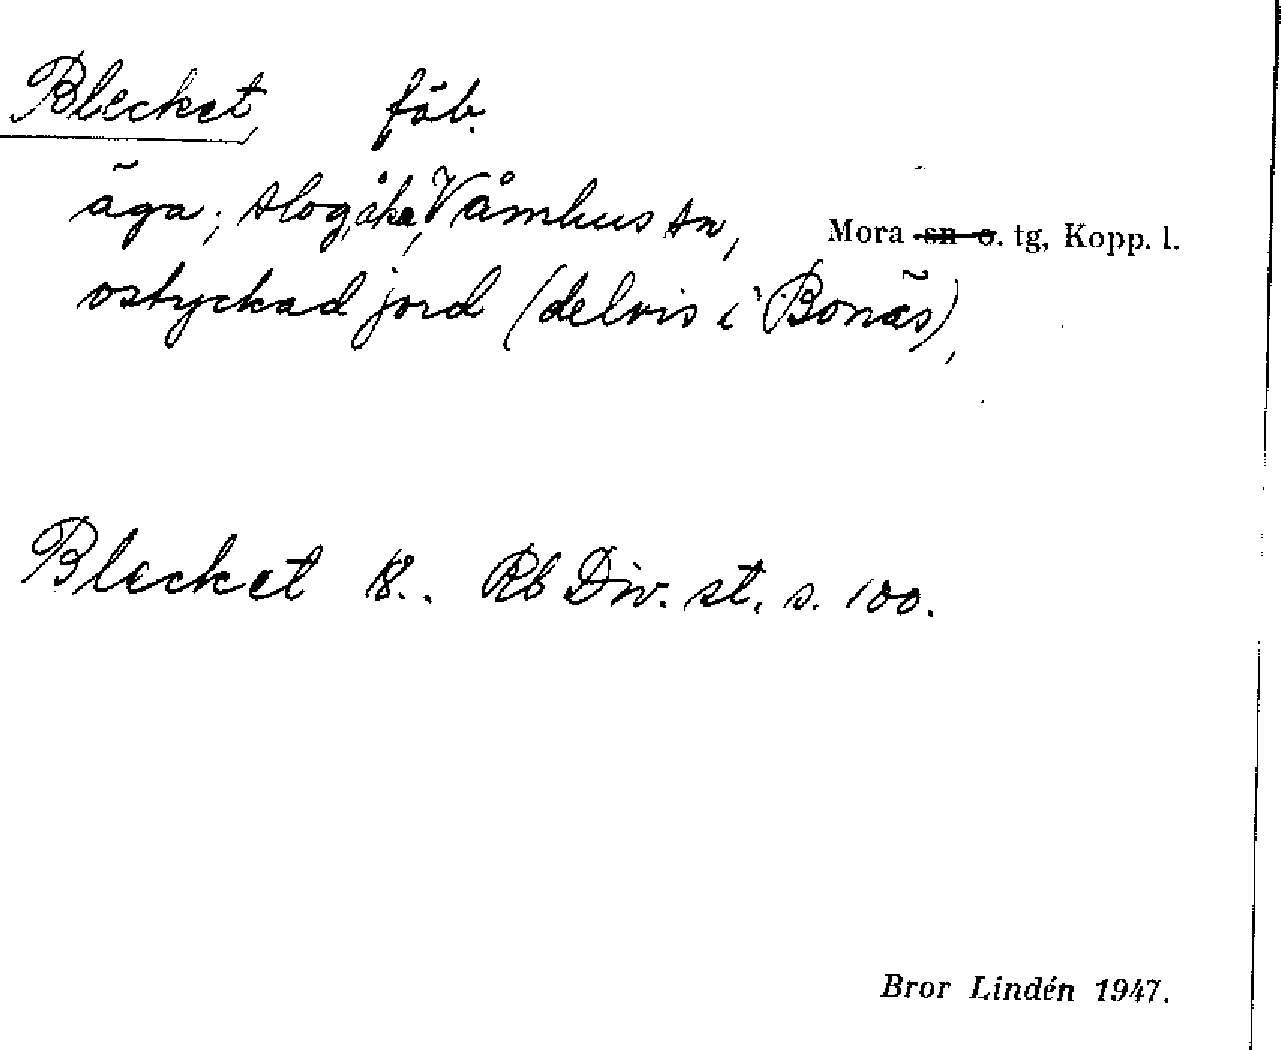 Blecket, fäb.
äga; slogåke, Våmhus sn, Mora sn o. tg, Kopp. l.
ostyckad jord (delvis i Bonäs),
Blecket 18.. Rb Div. st. s. 100.
Bror Lindén 1947.